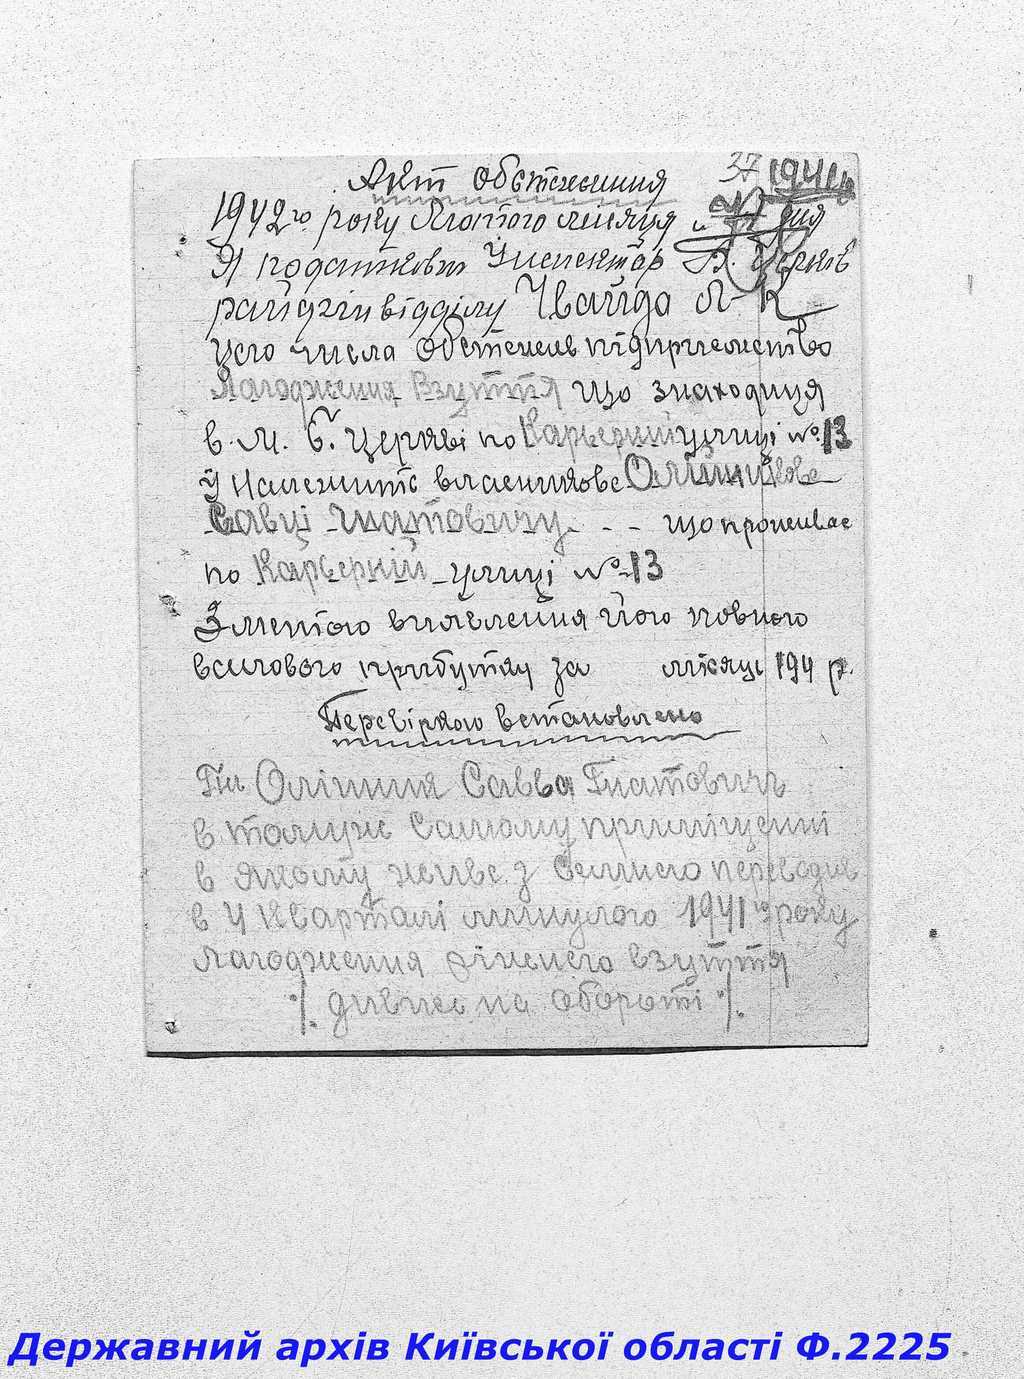 37 1941 р
Акт обстеження
1942го року Лютого місяця " 27 дня
Я податковий Инспектор Б. Церків
райфінвідділу Чвайда Л К
цього числа обстежив підприємство
Лагодження взуття що знаходиця
в м. Б. Церкві по Карьерній улиці № 13
Належить власникове Олійникове
Савці Гнатовичу - - - що проживає
по Карьерній улиці № 13
З метою виявлення його повного
валового прибутку за місяць 194 р.
Перевіркою встановлено
Гн Олійник Савва Гнатович
в томуж самому приміщенні
в якому живе з семнего переводив
в 4 Кварталі минулого 1941го року
лагодження ріжнего взуття
·/. дивись на обороті ·/.
Державний архів Київської області Ф.2225